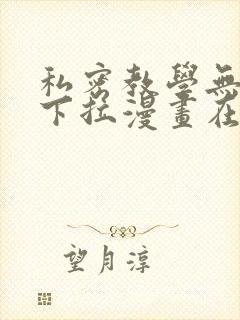 私密教學無
下拉漫畫在
望月淳